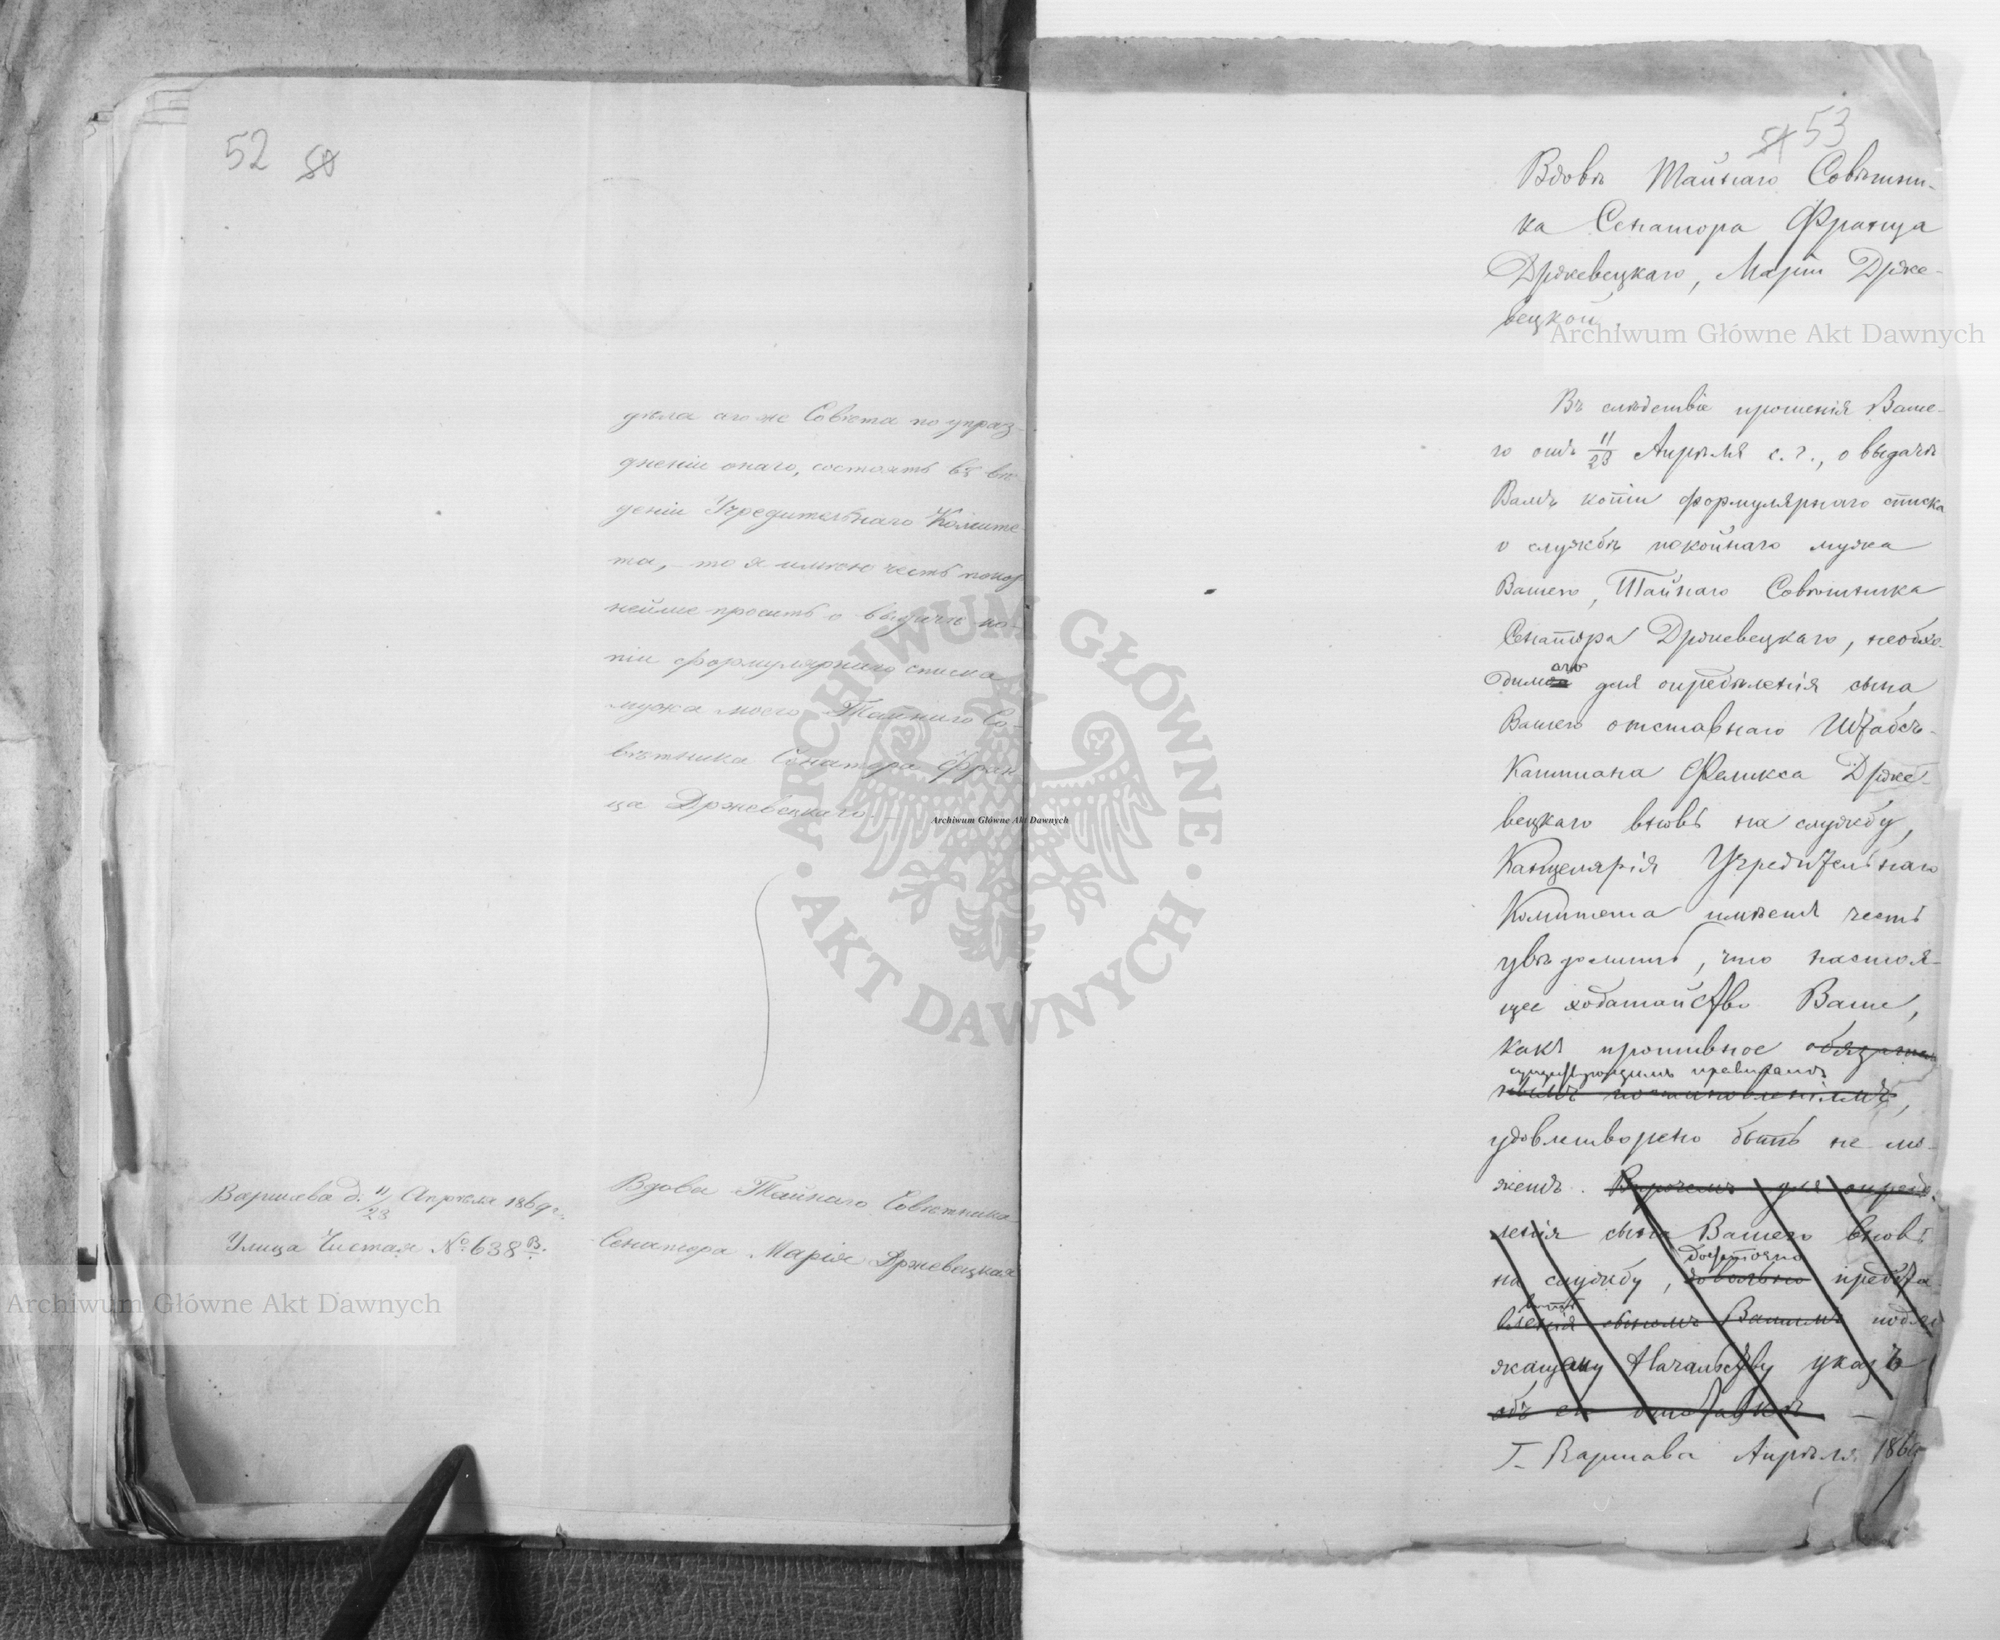 52 50
дѣла его же Совѣта по упраз-
дненіи онаго, состоятъ въ вѣ-
деніи Учредительнаго Комите-
та, то я имѣю честь покор-
нѣйше просить о выдачѣ ко-
піи формулярнаго списка
мужа моего Тайнаго Со-
вѣтника Сенатора Фран-
ца Држевецкаго.
Варшава д. 11/23 Апрѣля 1869 г.
Улица Чистая № 638 В.
Вдова Тайнаго Совѣтника
Сенатора Марія Држевецкая
51 53
Вдовѣ Тайнаго Совѣтни-
ка Сенатора Франца
Држевецкаго, Маріи Држе-
вецкой.
Въ слѣдствіе прошенія Ваше-
го отъ 11/23 Апрѣля с. г., о выдачѣ
Вамъ копіи формулярнаго списка
о службѣ покойнаго мужа
Вашего, Тайнаго Совѣтника
Сенатора Држевецкаго, необхо-
димаго для опредѣленія сына
Вашего отставнаго Штабсъ-
Капитана Феликса Држе-
вецкаго вновь на службу,
Канцелярія Учредительнаго
Комитета имѣетъ честь
увѣдомить, что настоя-
щее ходатайство Ваше,
какъ противное обязатель-
существующимъ правиламъ
нымъ постановленіямъ,
удовлетворено быть не мо-
жетъ. Впрочемъ для опредѣ-
ленія сына Вашего вновь
достаточно
на службу, довольно предста-
вить
вленія сыномъ Вашимъ подле-
жащему Начальству указъ
объ его отставкѣ —
Г. Варшава Апрѣля 186
Archiwum Główne Akt Dawnych
Archiwum Główne Akt Dawnych
Archiwum Główne Akt Dawnych
ARCHIWUM GŁÓWNE · AKT DAWNYCH ·